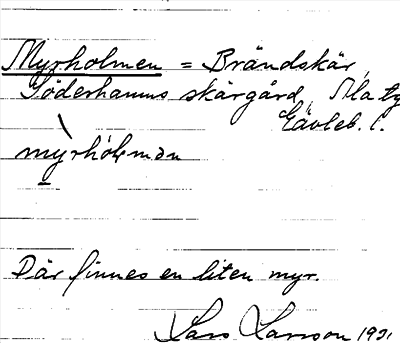 Myrholmen = Brändskär,
Söderhamns skärgård, Ala ty
Gävleb. l.
myrhólmən
Där finnes en liten myr.
Lars Larsson 193